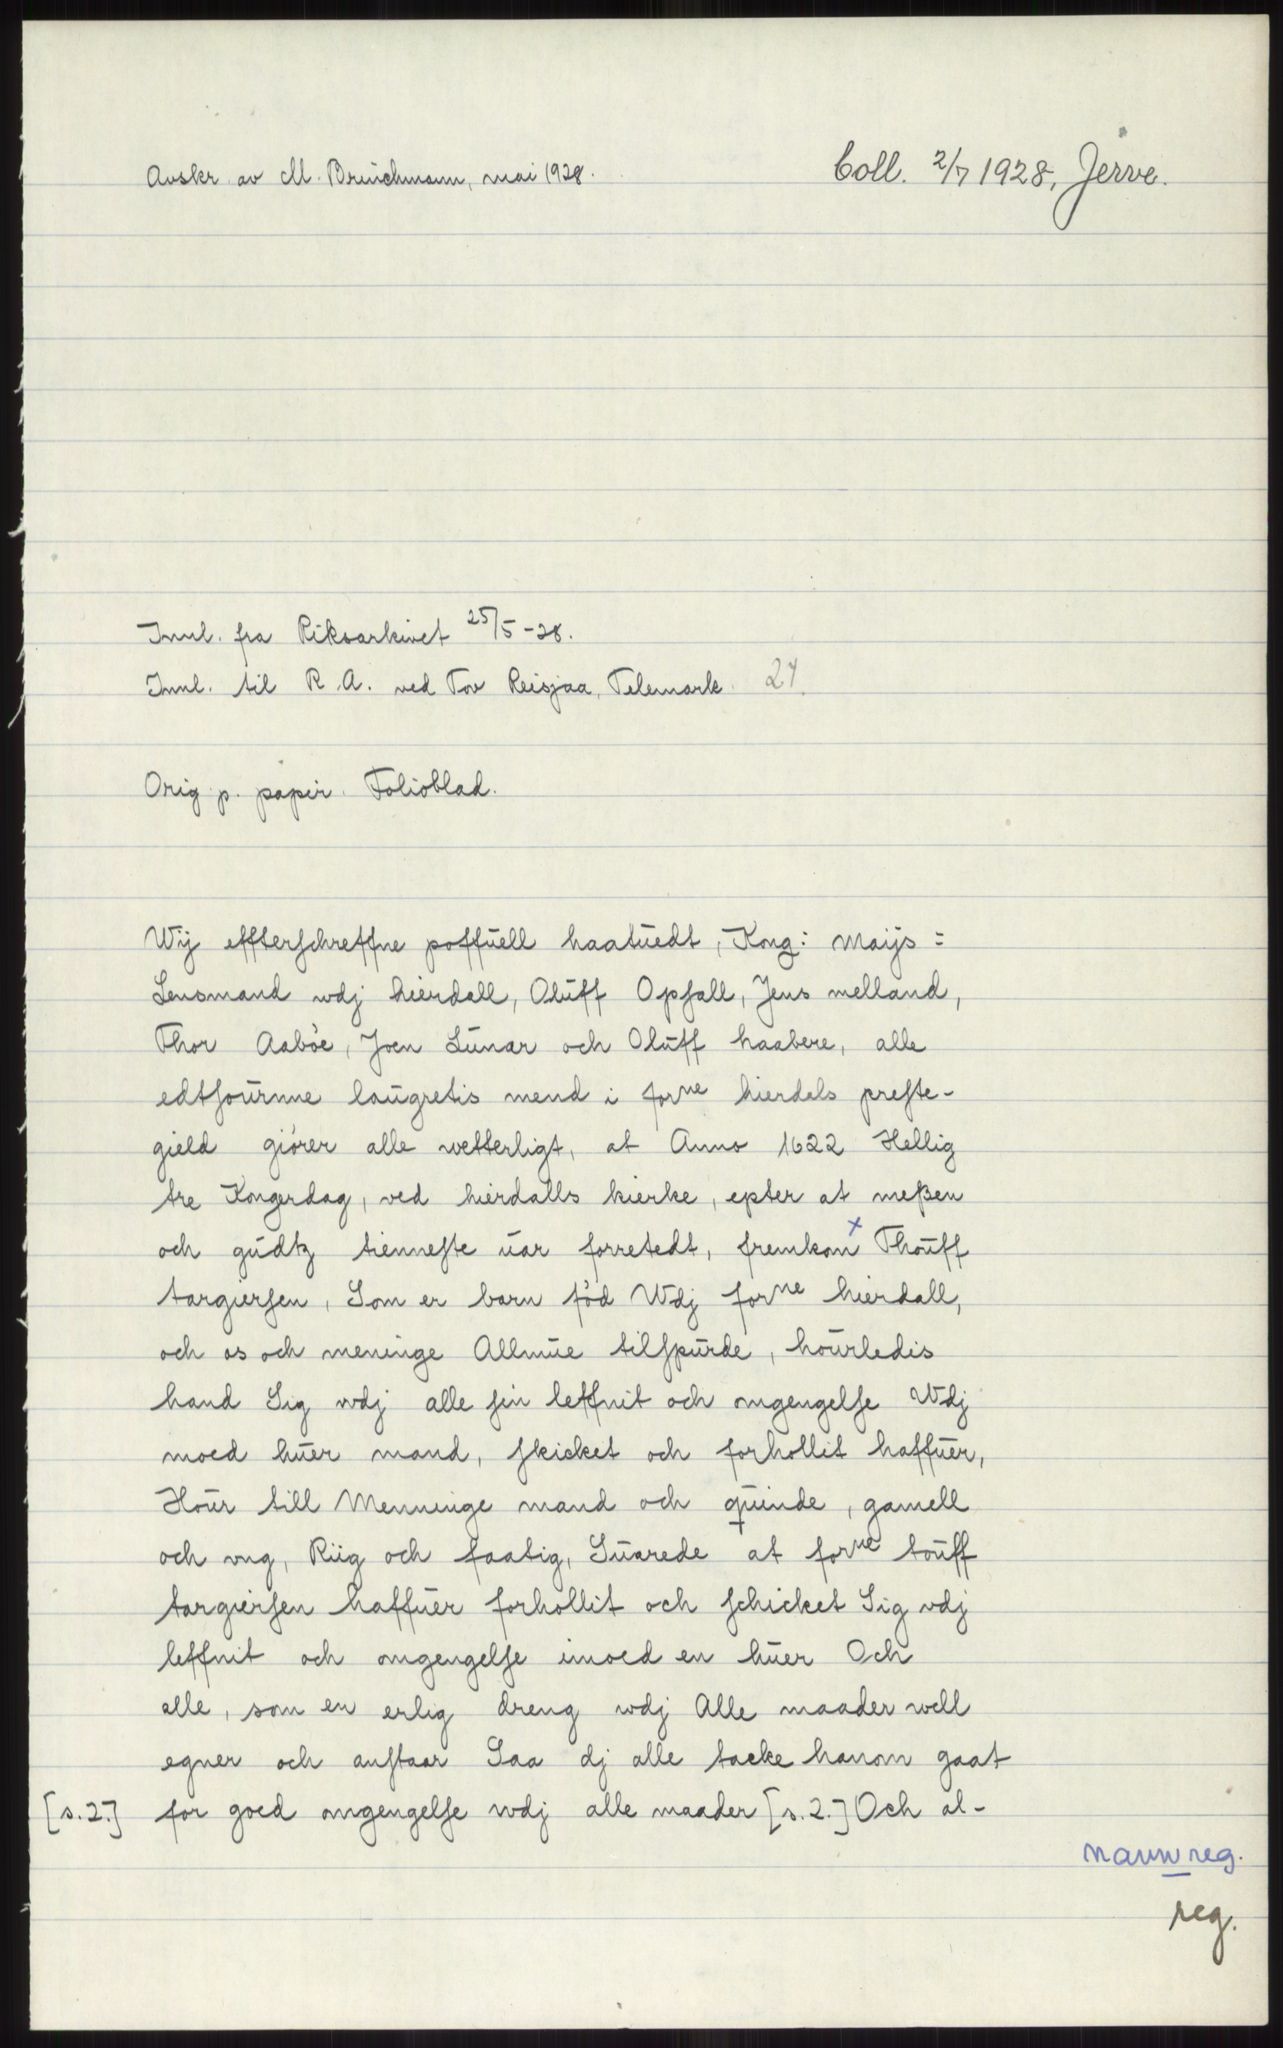 Avskr. av M. Bruichmann, mai 1928.
Coll. 2/7 1928, Jerve.
Innl. fra Riksarkivet 25/5-28.
Innl. til R. A. ved Tov Reisjaa, Telemark. 24.
Orig p. papir. Folioblad.
Wij effterschreffne poffuell haatuedt, Kong: Maijs:
Lensmand wdj hierdall, Oluff Opsall, Jens melland,
Thor Aabøe, Joen Lunar och Oluff haabere, alle
edtsournne laugretis mend i forne hierdals preste-
gield giører alle wetterligt, at Anno 1622 Hellig
tre Kongerdag, ved hierdalls kierke, epter at meßen
och gudtz tienneste uar forretedt, fremkom x Thouff
targiersen, Som er barn fød Wdj forne hierdall,
och os och meninge Allmue tilspurde, hourledis
hand Sig wdj alle sin leffnit och omgengelse Wdj
moed huer mand, skicket och forhollit haffuer,
Hour till Menninge mand och quinde, gamell
och vng, Riig och faatig, Suarede at forne touff
targiersen haffuer forhollit och schicket Sig vdj
leffnit och omgengelse imoed en huer Och
alle, som en erlig dreng wdj Alle maader well
egner och anstaar Saa dj alle tacke hanom gaat
[s. 2.] for goed omgengelse wdj alle maader [s. 2.] Och al-
navnreg.
reg.